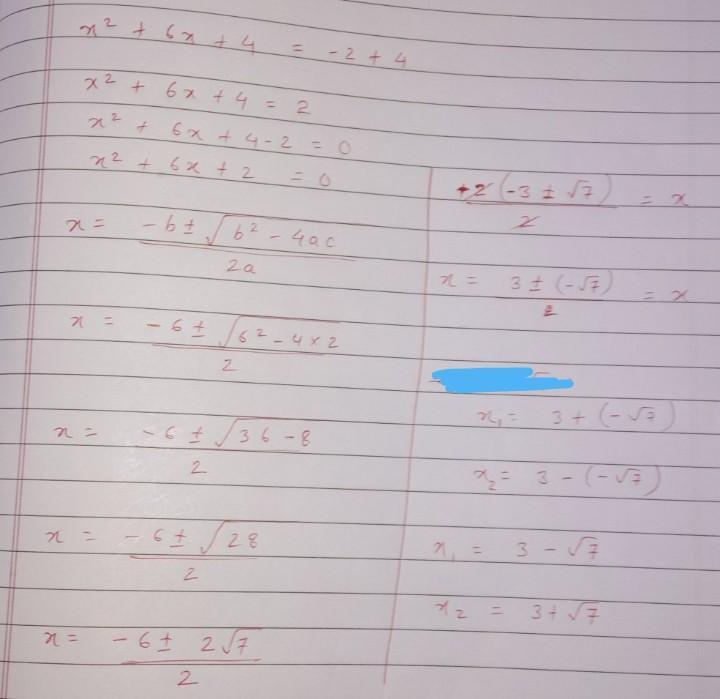 x² + 6x + 4 = -2 + 4
x² + 6x + 4 = 2
x² + 6x + 4 - 2 = 0
x² + 6x + 2 = 0
x = (-b ± √(b² - 4ac)) / 2a
x = (-6 ± √(6² - 4 × 2)) / 2
x = (-6 ± √(36 - 8)) / 2
x = (-6 ± √28) / 2
x = (-6 ± 2√7) / 2
+2(-3 ± √7) / 2 = x
x = 3 ± (-√7) = x
x₁ = 3 + (-√7)
x₂ = 3 - (-√7)
x₁ = 3 - √7
x₂ = 3 + √7